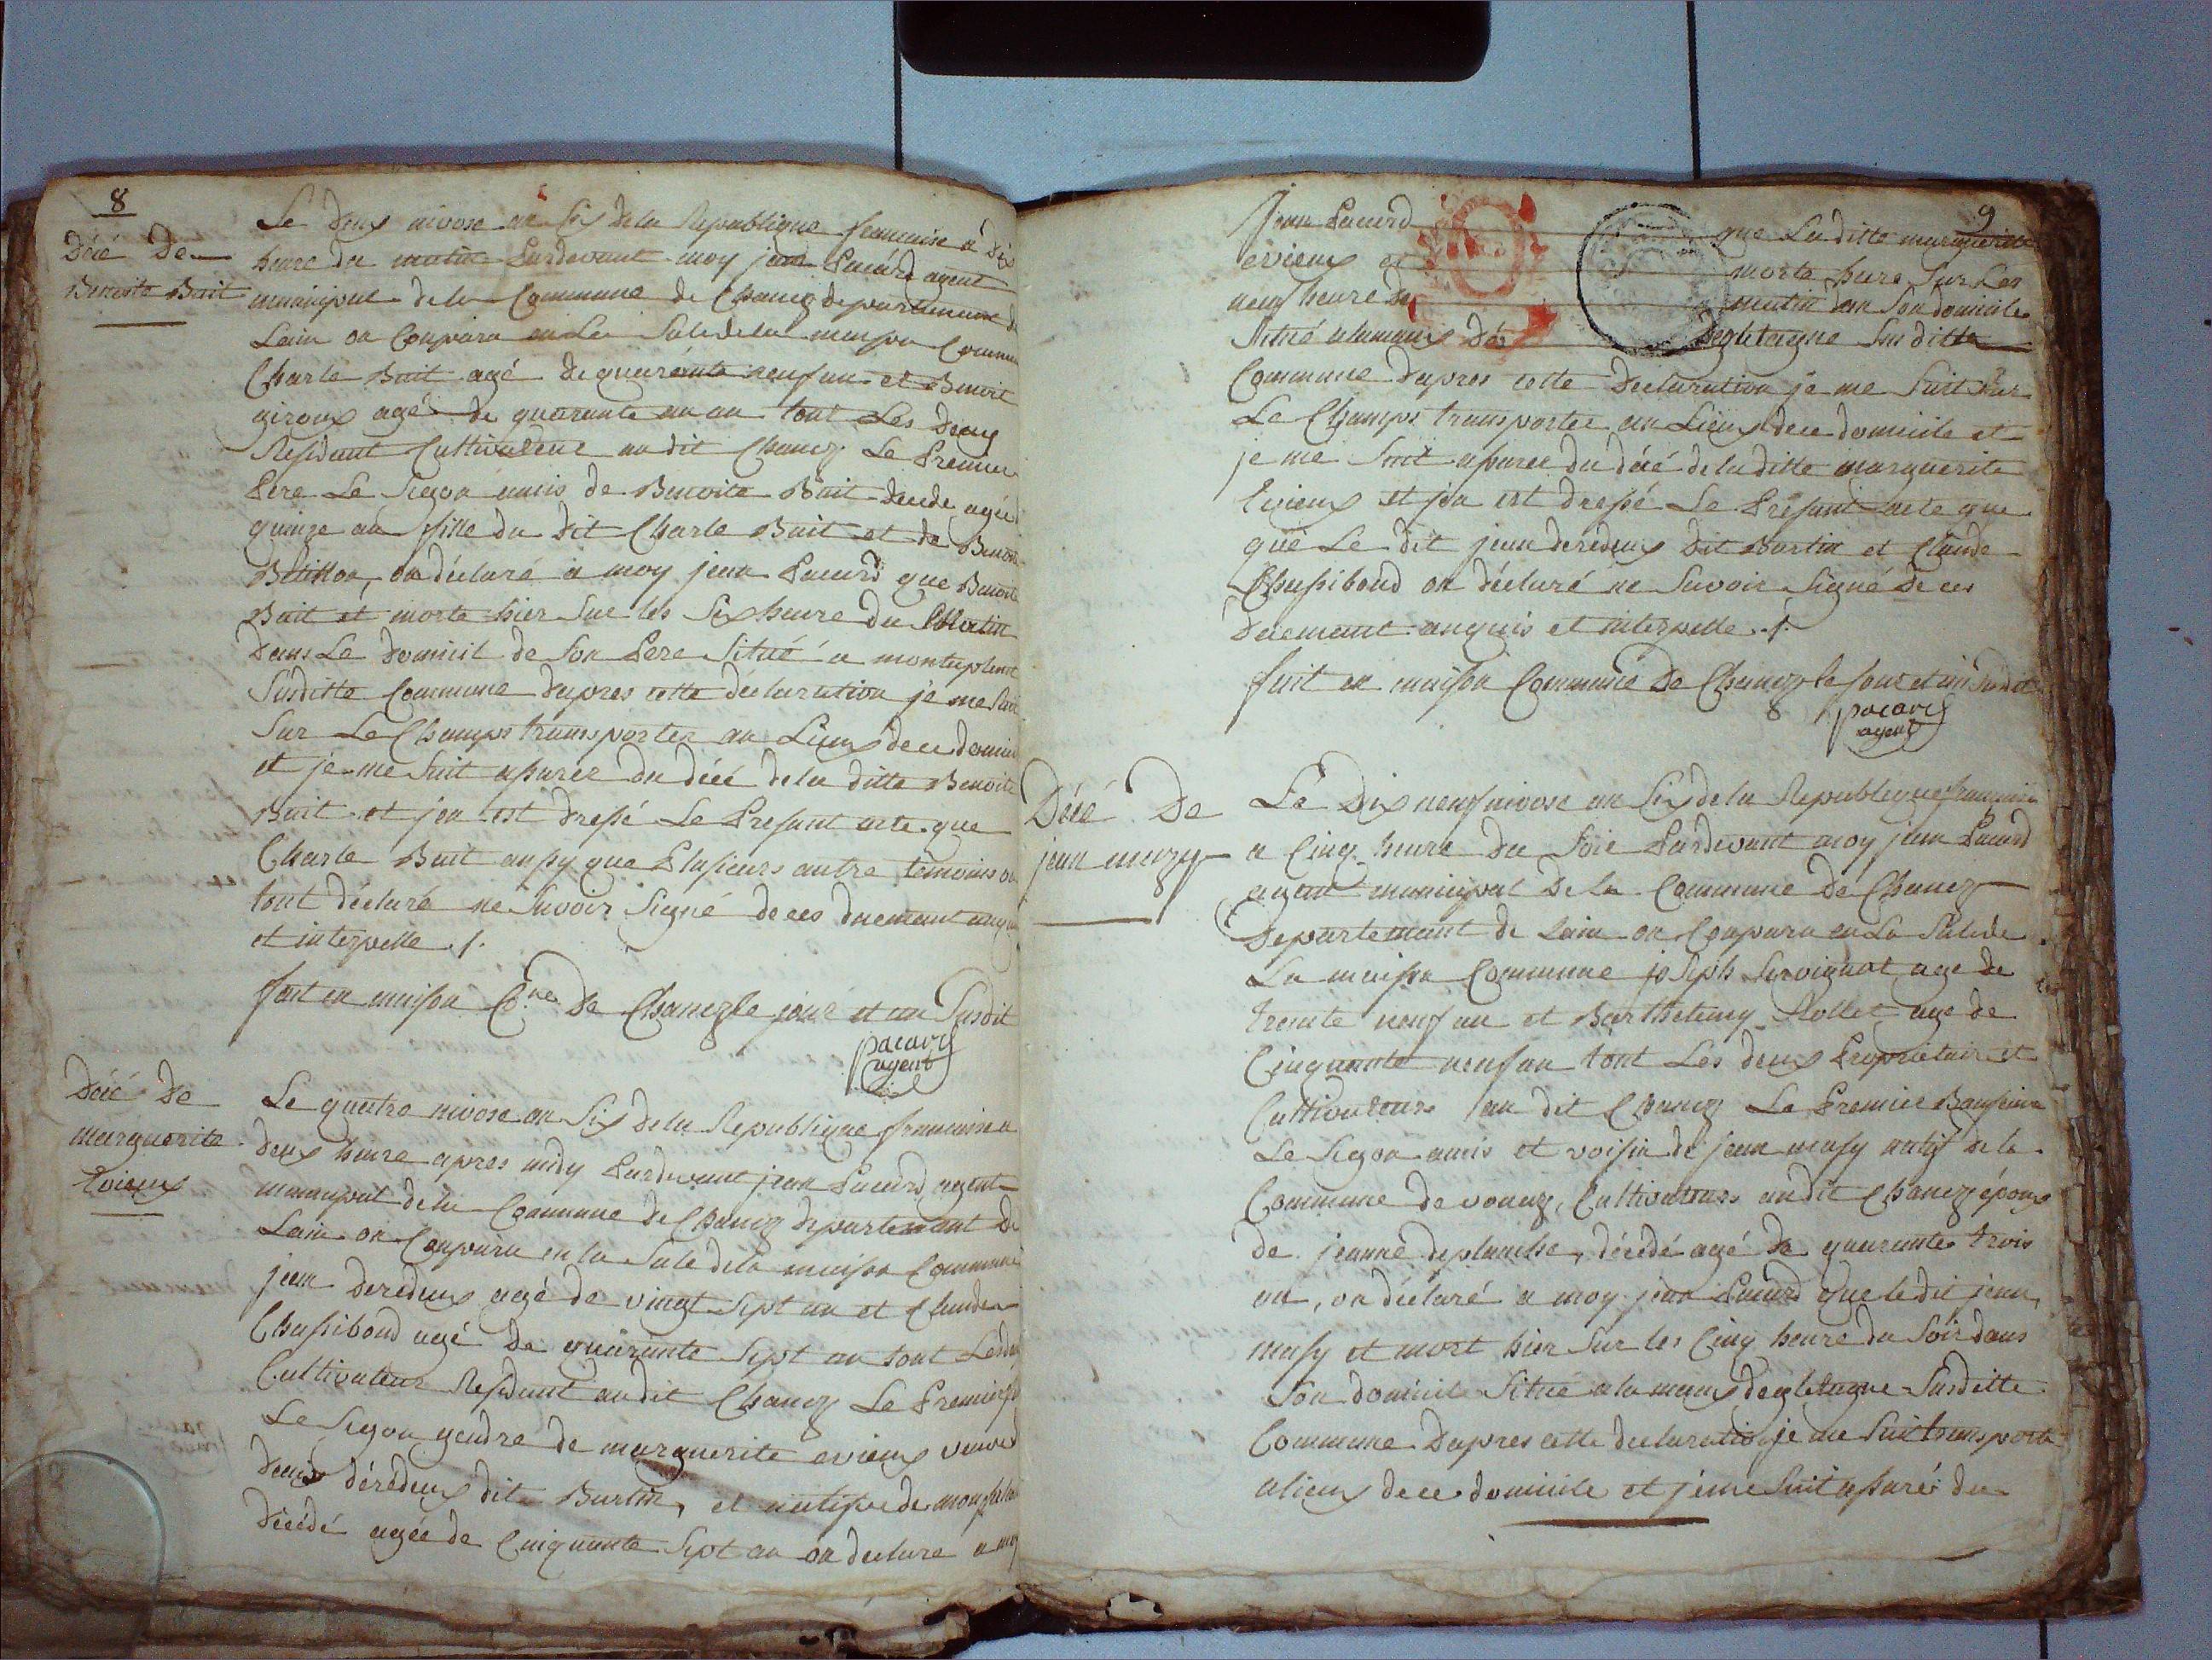 8
Décé De
Benoite Buit
Le deux nivose an six dela Republique francaise a Dix
heure du matin Pardevant moy jean Pacard agent
municipal dela Commune de Chanoz departemant de
Lain on Conparu en La Sale dela maison Commune
Charle Buit agé de quarente neuf an et Benoit
giroux agé de quarante un an tout Les Deux
Residant Cultivateur au dit Chanoz Le Premier
Pere Le Segon amis de Benoite Buit decede agée
quinze an fille du dit Charle Buit et de Benoite
on déclaré a moy jean Pacard que Benoite
Buit et morte hier Sur les Six heure du Matin
Dans Le domicil de Son Pere Situé a montaplent
Susditte Commune dapres cette déclaration je me Suit
Sur Le Champs transporter au Lieux de ce domicile
et je me Suit asurer du décé dela ditte Benoite
Buit et jen est dressé Le Presant acte que
Charle Buit aussy que Plusieurs autre temoins on
tout déclaré ne Savoir Signé de ces duemant anquis
et interpelle ./.
fait en maison Cne De Chanoz le jour et an Susdit
pacard
agent
Décé De
marguerite
Evieux
Le quatre nivose an Six dela Republique francaise a
deux heure apres midy Pardevant jean Pacard agent
municipal dela Commune de Chanoz departemant De
Lain on Conparu en la Sale dela maison Commune
jean deredeux agé de vingt Sept an et Claude
Chassiboud agé De quarante Sept an tout Les deux
Cultivateur Residant au dit Chanoz Le Premier fils
Le Segon gendre de marguerite evieux veuve
déredeux dit Burtin, et natifve de
décédé agée de Cinquante Sept an on declare a moy
9
Jean Pacard que Laditte marguerite
evieux et morte hiere Sur Les
neuf heure du matin dan Son domicile
Situé alamaux Dégletagne Susditte
Commune dapres cette Declaration je me Suit Sur
Le Champs transporter au Lieux de ce domicile et
je me Suit asurer du décé de laditte marguerite
Evieux et jen est dressé Le Présant acte que
que Le dit jean deredeux dit Burtin et Claude
Chassiboud on déclaré ne Savoir Signé de ces
Duemant anquis et interpelle ./.
fait en maison Commune De Chanoz le jour et an Susdit
pacard
agent
Décé De
jean mazy
Le Dix neuf nivose an Six dela Republique francaise
a Cinq heure du Soir Pardevant moy jean Pacard
agent municipal De la Commune De Chanoz
Departemant de Lain on Conparu en La Sale de
La maison Commune joseph Servignat age de
trente neuf an et Barthelemy Rollet age de
Cinquante neuf an tout Les deux Propriétair et
Cultivateurs au dit Chanoz Le Premier Baufrere
Le Segon amis et voisin de jean masy natif de la
Commune de vonaz, Cultivateurs au dit Chanoz époux
de jeanne deplanche, décédé agé De quarante trois
an, on déclaré a moy jean Pacard que le dit jean
masy et mort hier Sur les Cinq heure du Soir dans
Son domicile Situé a la maux déglétagne Susditte
Commune Dapres cette declaration je me Suit transporté
alieux de ce domicile et je me Suit asuré du